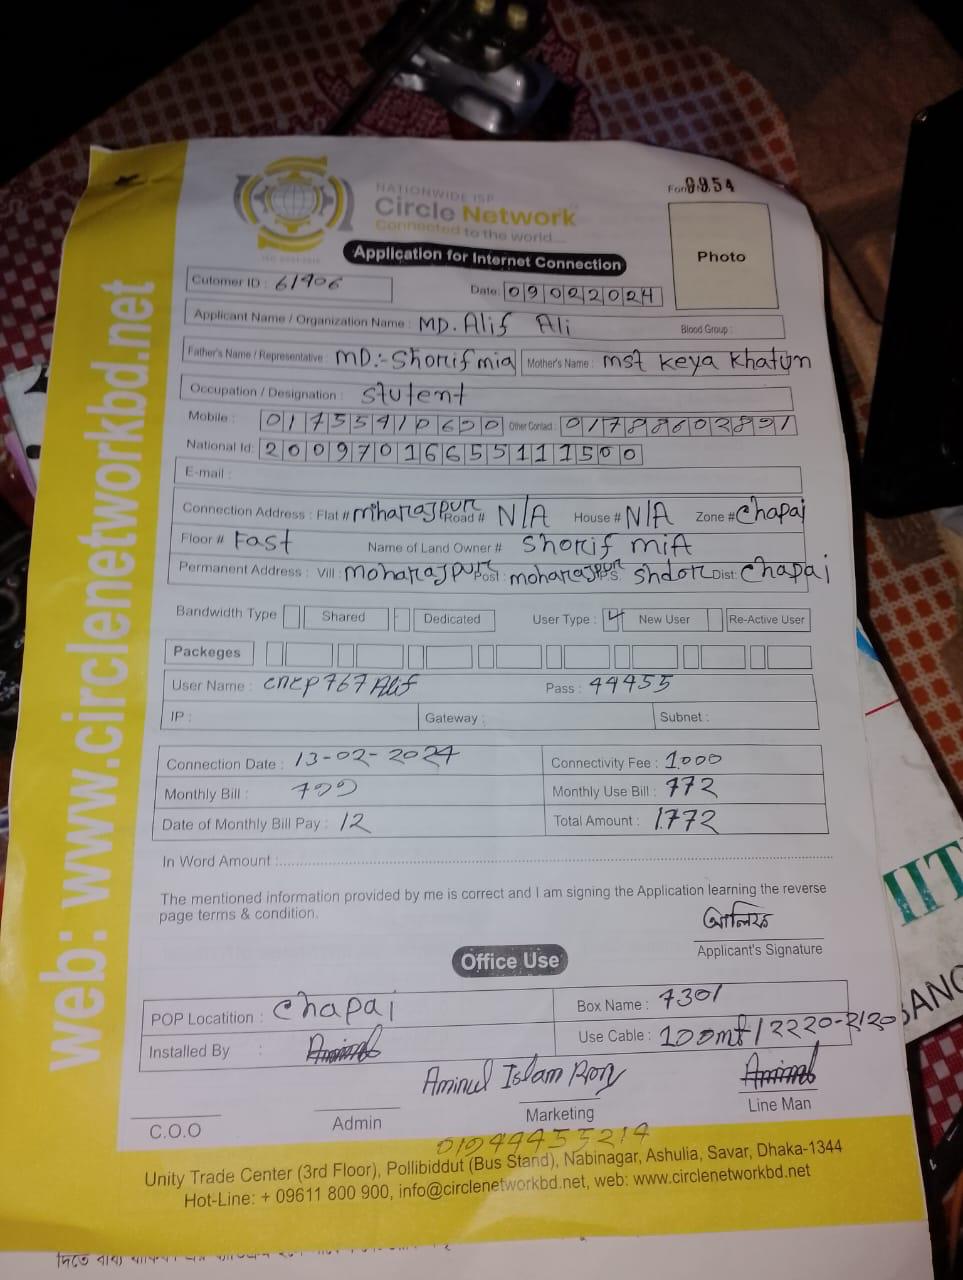 NATIONWIDE ISP
Circle Network
Connected to the world...
Form 9954
Photo
Application for Internet Connection
Cutomer ID : 61906
Date: 09022024
Applicant Name / Organization Name : MD. Alif Ali Blood Group :
Father's Name / Representative : MD:- Shorif mia Mother's Name : mst keya khatun
Occupation / Designation : Stutent
Mobile : 01755410620 Other Contact : 01788602891
National Id: 20097016655111500
E-mail :
Connection Address : Flat # miharajpur Road # N/A House # N/A Zone # Chapai
Floor # Fast Name of Land Owner # Shorif miA
Permanent Address : Vill : moharajpur Post : moharajpur P.S: Shdor Dist: Chapai
Bandwidth Type Shared Dedicated User Type : New User Re-Active User
Packeges
User Name : cncp767Alif Pass : 44455
IP : Gateway : Subnet :
Connection Date : 13-02-2024 Connectivity Fee : 1000
Monthly Bill : 799 Monthly Use Bill : 772
Date of Monthly Bill Pay : 12 Total Amount : 1772
In Word Amount :
The mentioned information provided by me is correct and I am signing the Application learning the reverse
page terms & condition.
আলিফ
Applicant's Signature
Office Use
POP Locatition : Chapai Box Name : 7301
Installed By : Use Cable : 100mt / 2220-2120
Aminul Islam Rony
C.O.O Admin Marketing Line Man
01944455214
Unity Trade Center (3rd Floor), Pollibiddut (Bus Stand), Nabinagar, Ashulia, Savar, Dhaka-1344
Hot-Line: + 09611 800 900, info@circlenetworkbd.net, web: www.circlenetworkbd.net
web: www.circlenetworkbd.net